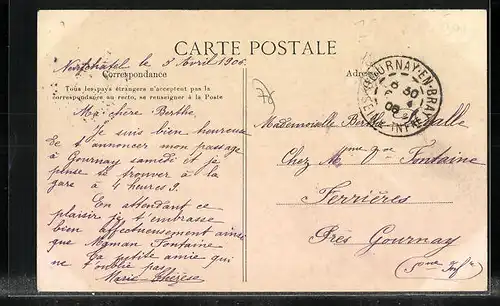 CARTE POSTALE
Neufchâtel le 3 Avril 1906.
Correspondance
Tous les pays étrangers n'acceptent pas la
correspondance au recto, se renseigner à la Poste
Ma chère Berthe
Je suis bien heureuse
de t'annoncer mon passage
à Gournay samedi et je
pense te trouver à la
gare à 4 heures 9.
En attendant ce
plaisir je t'embrasse
bien affectueusement ainsi
que Maman Fontaine
Ta petite amie qui
ne t'oublie pas
Marie Thérèse
Adre
GOURNAY-EN-BRAY
INFRE
30
4
06
Mademoiselle Berthe
Chez Mme Vve Fontaine
Ferrières
Près Gournay
(Sne Infre)